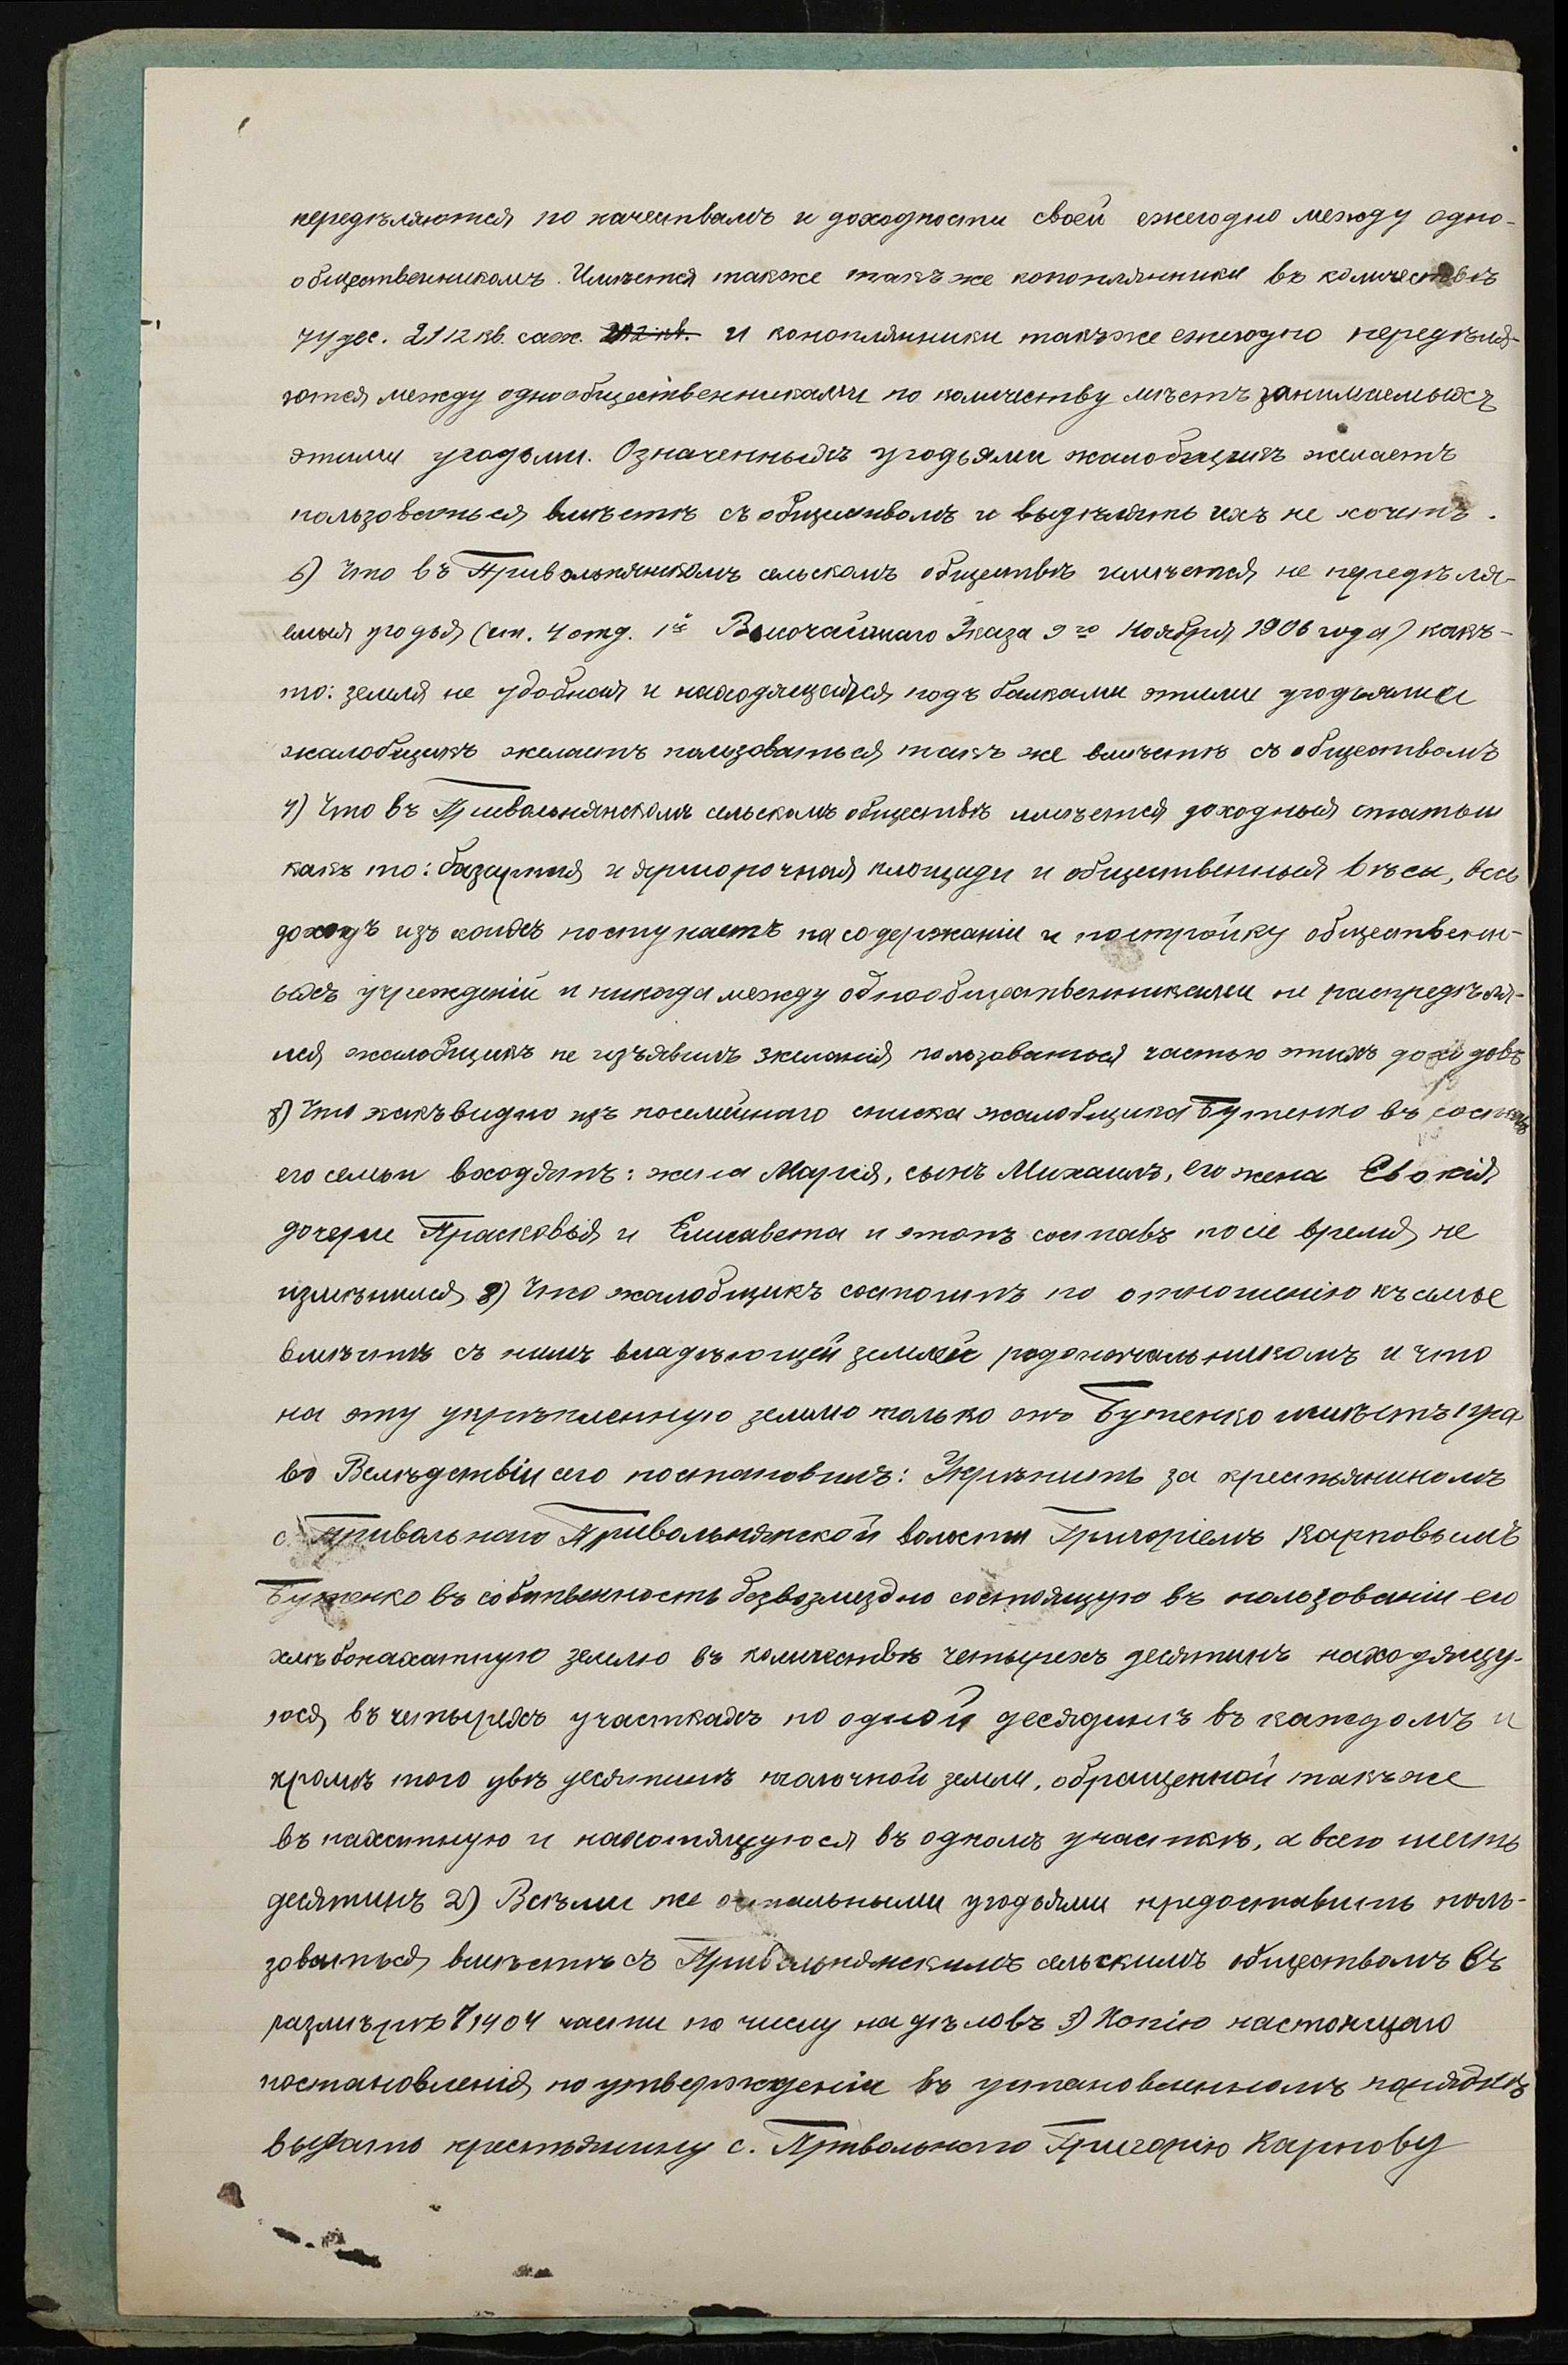 передѣляются по качествамъ и доходности своей ежегодно между одно-
общественникомъ. Имѣется также такъ же конопляники въ количествѣ
74 дес. 2112 кв. саж. и конопляники такъ же ежегодно передѣля-
ются между однообщественниками по количеству мѣстъ занимаемыхъ
этими угодьми. Означенныхъ угодьями жалобщикъ желаетъ
пользоваться вмѣстѣ съ обществомъ и выдѣлять ихъ не хочетъ.
6) Что въ Привольнянскомъ сельскомъ обществѣ имѣется не передѣля-
емыя угодья (ст. 4 отд. 1й Высочайшаго Указа 9го Ноября 1906 года) какъ-
то: земля не удобная и находящаяся подъ балками этими угодьями
жалобщикъ желаетъ пользоваться такъ же вмѣстѣ съ обществомъ
7) Что въ Привольнянскомъ сельскомъ обществѣ имѣется доходныя статьи
какъ то: базарная и ярморочная площади и общественныя вѣсы, весь
доходъ изъ коихъ поступаетъ на содержаніи и постройку обществен-
ыхъ учрежденій и никогда между однообщественниками не распредѣля-
лся жалобщикъ не изъявилъ желанія пользоваться частью этихъ доходовъ
8) Что какъ видно изъ посемейнаго списка жалобщика Бутенко въ составъ
его семьи входятъ: жена Марія, сынъ Михаилъ, его жена Евокія
дочери Прасковья и Елисавета и этотъ составъ посіе время не
измѣнился 9) Что жалобщикъ состоитъ по отношенію къ семье
вмѣстѣ съ нимъ владѣющей землей родоначальникомъ и что
на эту укрѣпленную землю только онъ Бутенко имѣетъ пра
во Вслѣдствіи сего постановилъ: Укрѣпить за крестьяниномъ
с. Привольнаго Привольнянской волости Григоріемъ Карповымъ
Бутенко въ собственность безвозмездно состоящую въ пользованіи его
хлѣбопахатную землю въ количествѣ четырехъ десятинъ находящу-
юся въ четырехъ участкахъ по одной десядинѣ въ каждомъ и
кромѣ того двѣ десятинъ толочной земли, обращенной такъ же
въ пахатную и нахотящуюся въ одномъ участкѣ, а всего шесть
десятинъ 2) Всѣми же остальными угодьями предоставить поль-
зоваться вмѣстѣ съ Привольнянскимъ сельскимъ обществомъ въ
размѣрѣ 1/1404 части по числу надѣловъ 3) Копію настоящаго
постановленія по утвержденіи въ установленномъ порядкѣ
выдать крестьянину с. Привольнаго Григорію Карпову